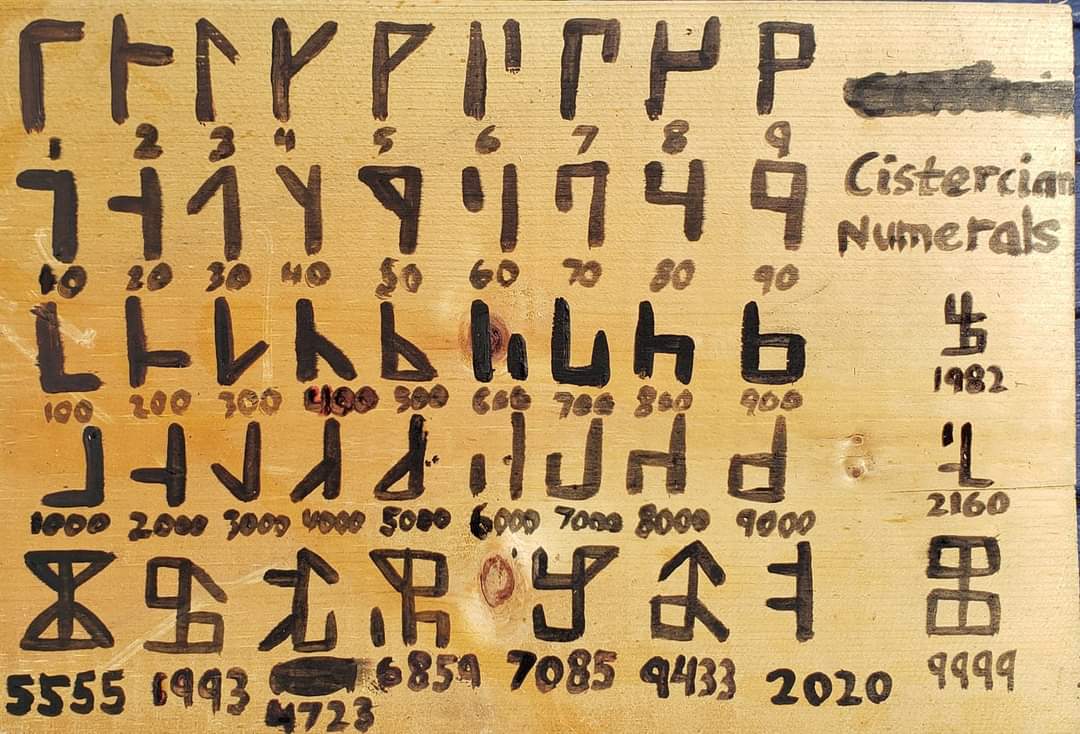 1 2 3 4 5 6 7 8 9
Cistercian
Numerals
10 20 30 40 50 60 70 80 90
100 200 300 400 500 600 700 800 900
1982
1000 2000 3000 4000 5000 6000 7000 8000 9000
2160
5555 1993 4723 6859 7085 9433 2020 9999